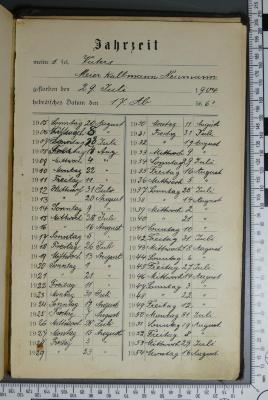 Jahrzeit
mein s sel. Vaters
Meier Kallmann Neumann
gestorben den 29 Juli 1904
hebräisches Datum den 17 Ab 566
1905 Sonntag 20 August
1906 Mittwoch 8 "
1907 Sonntag 28 Juli
1908 14 Aug
1909 Mittwoch 4 "
1910 Montag 22 "
1911 Freitag 11 "
1912 Mittwoch 31 Juli
1913 " 20 August
1914 Sonntag 9 "
1915 Mittwoch 28 Juli
1916 " 16 August
1917 Sonntag 5 "
1918 Freitag 26 Juli
1919 Mittwoch 13 August
1920 Sonntag 1 "
1921 " 21 "
1922 Freitag 11 "
1923 Montag 30 Juli
1924 Sonntag 17 August
1925 Freitag 7 August
1926 Mittwoch 28 Juli
1927 Montag 15 August
1928 Freitag 3 "
1929 " 23 "
1930 Montag 11 August
31 Freitag 31 Juli
32 " 19 August
33 Mittwoch 9 "
34 Sonntag 29 Juli
35 Freitag 16 August
36 Mittwoch 5 "
37 Sonntag 25 Juli
1938 " 14 August
1939 Mittwoch 2 "
1940 " 21 "
1941 Sonntag 10 "
1942 Freitag 31 Juli
1943 Mittwoch 18 August
1944 Sonntag 6 "
1945 Freitag 27 Juli
1946 Mittwoch 14 August
1947 Sonntag 3 "
1948 " 22 "
1949 Freitag 12 "
1950 Montag 31 Juli
1951 Sonntag 19 August
1952 Freitag 8 "
1953 Mittwoch 29 Juli
1954 Montag 16 August